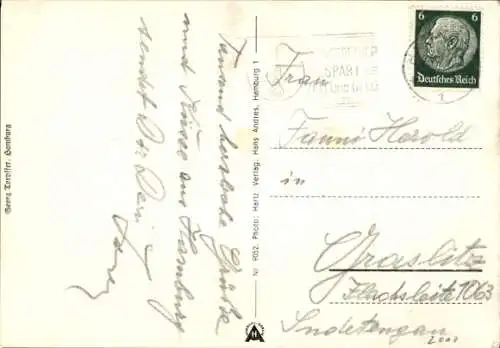 Tausend herzliche Grüße
und Küsse aus Hamburg
sendet Dir Dein
Georg Toepffer, Hamburg
Nr. 9052. Photo: Hartz Verlag. Hans Andres, Hamburg 1
6 6
Deutsches Reich
SPART
Frau
Fanni Herold
in
Graslitz
Flachsleite 1063
Sudetengau